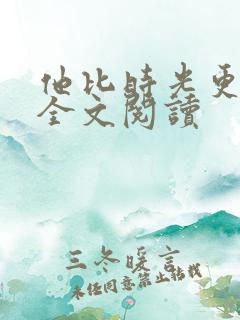 他比時光更
全文閱讀
三冬暖言
未任同意禁止轉載